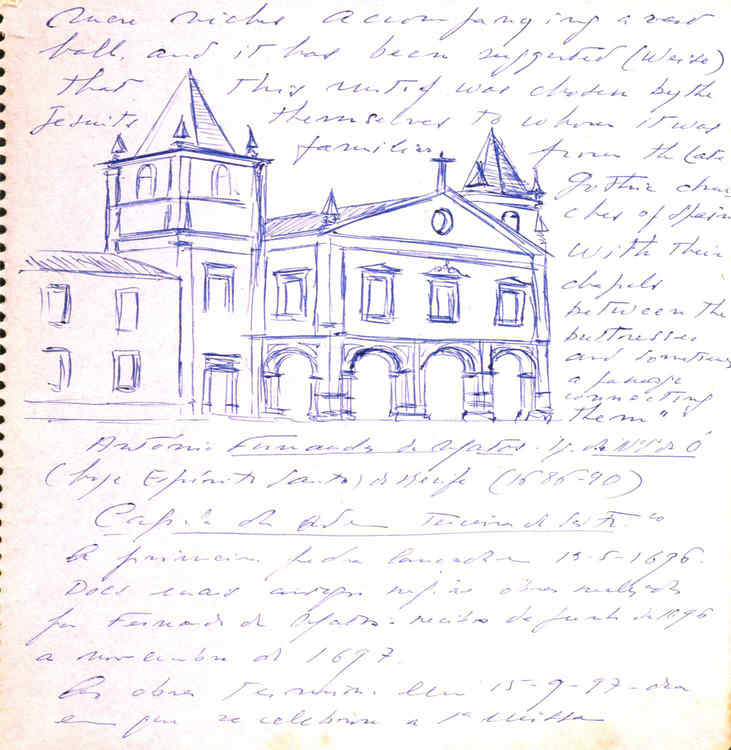 mere niches accompanying a vast
hall, and it has been suggested (Weise)
that this motif was chosen by the
Jesuits themselves to whom it was
familiar from the late
Gothic chur-
ches of Spain
with their
chapels
between the
buttresses
and sometimes
a passage
connecting
them"
António Fernandes de Matos. Ig. de N. S. do Ó
(hoje Espírito Santo) do Recife (1686-90)
Capela da Ordem Terceira de S. Fr.co
A primeira pedra lançada em 13-5-1696.
Docs mais antigos obras
por Fernandes de Matos - recibo de de 1696
a novembro de 1697.
As obras em 15-9-97 - dia
em que se celebrou a 1ª missa